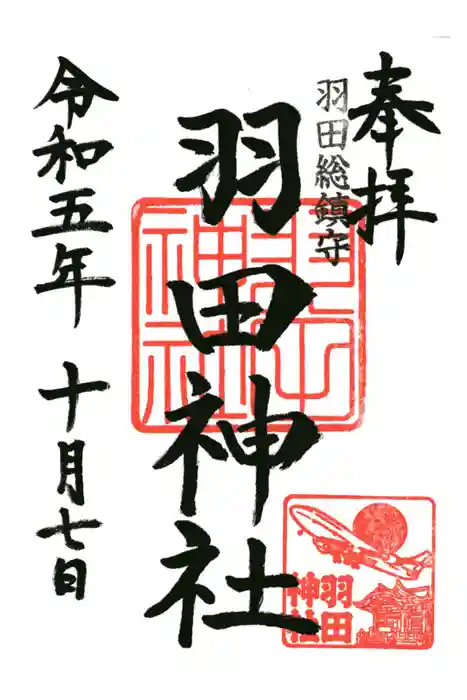 奉拝
羽田総鎮守
羽田神社
令和五年 十月七日
羽田神社
羽田
神社